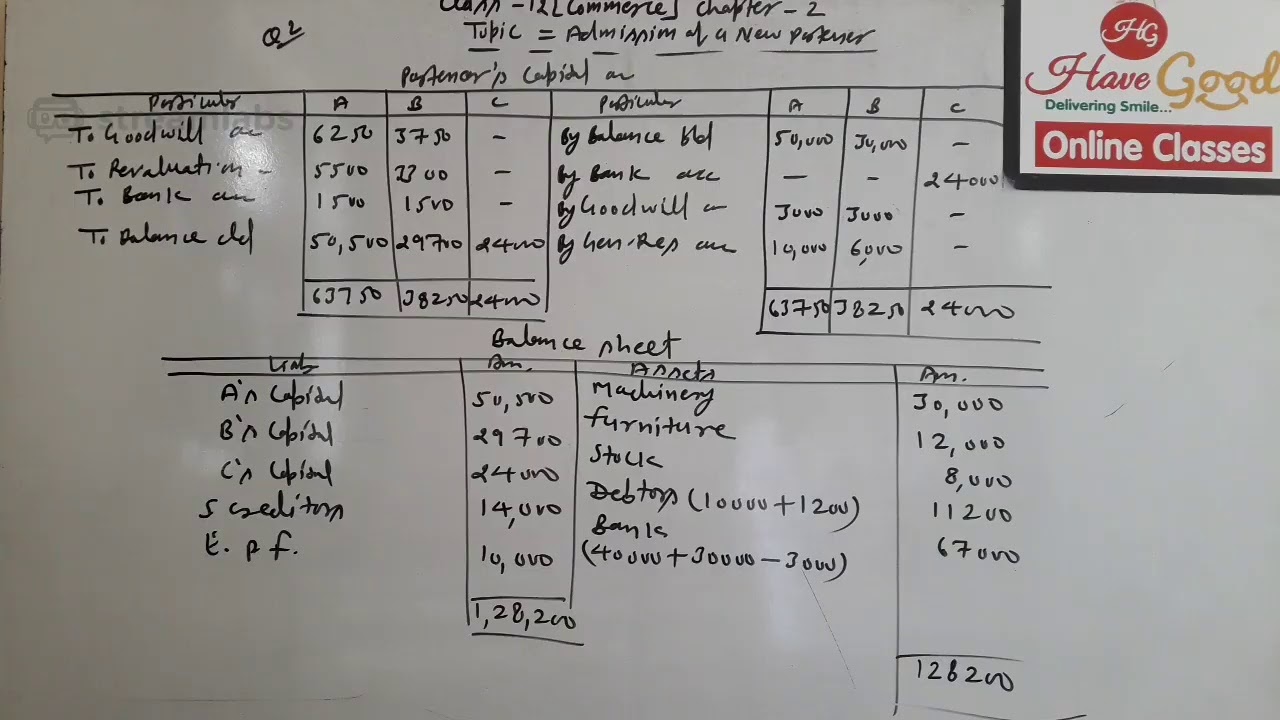 Class - 12 [Commerce] Chapter - 2
Q2
Topic = Admission of a New Partener
HG
Have Good
Delivering Smile...
Online Classes
streamlabs
Partener's Capital ac
Particular A B C Particular A B C
To Goodwill ac 6250 3750 - By Balance b/d 50,000 30,000 -
To Revaluation - 5500 3300 - By Bank acc - - 24000
To Bank ac 1500 1500 - By Goodwill ac 3000 3000 -
To Balance c/d 50,500 29700 24000 By Gen. Res ac 10,000 6,000 -
63750 38250 24000 63750 38250 24000
Balance sheet
Liab Am. Assets Am.
A's Capital 50,500 Machinery 30,000
B's Capital 29700 furniture 12,000
C's Capital 24000 Stock 8,000
S creditors 14,000 Debtors (10000+1200) 11200
E. p f. 10,000 Bank (40000+30000-3000) 67000
1,28,200
128200